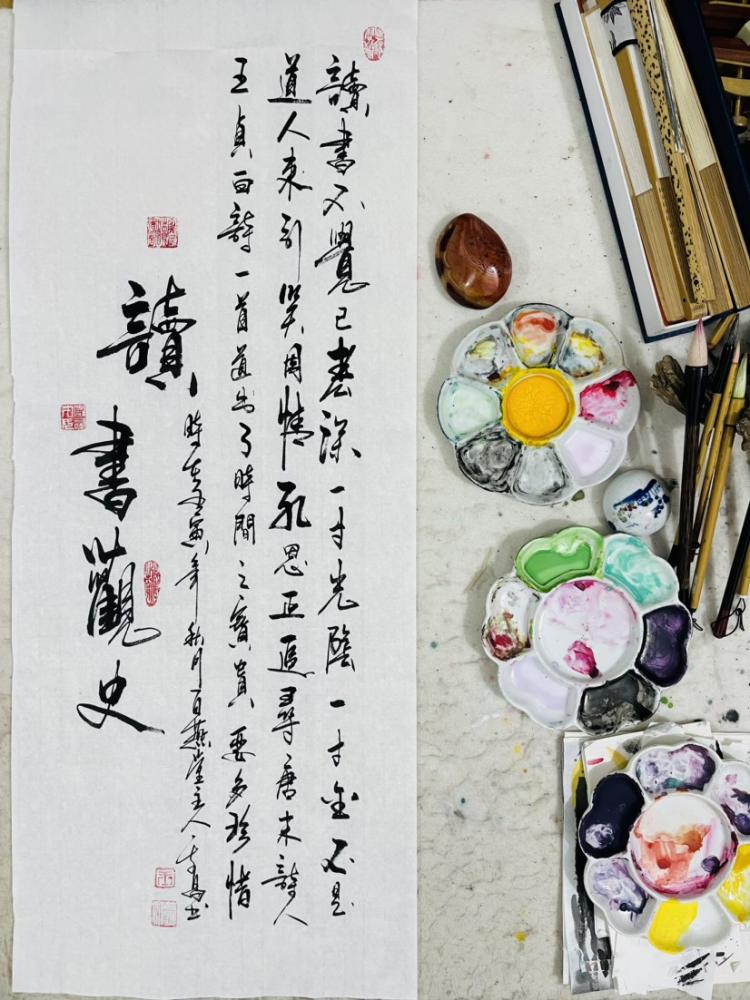 讀書不覺已春深一寸光陰一寸金不是
道人來引笑周情孔思正追尋唐末詩人
王貞白詩一首道出了時間之寶貴要多珍惜
時在壬寅年秋月百燕主人書
讀書觀史